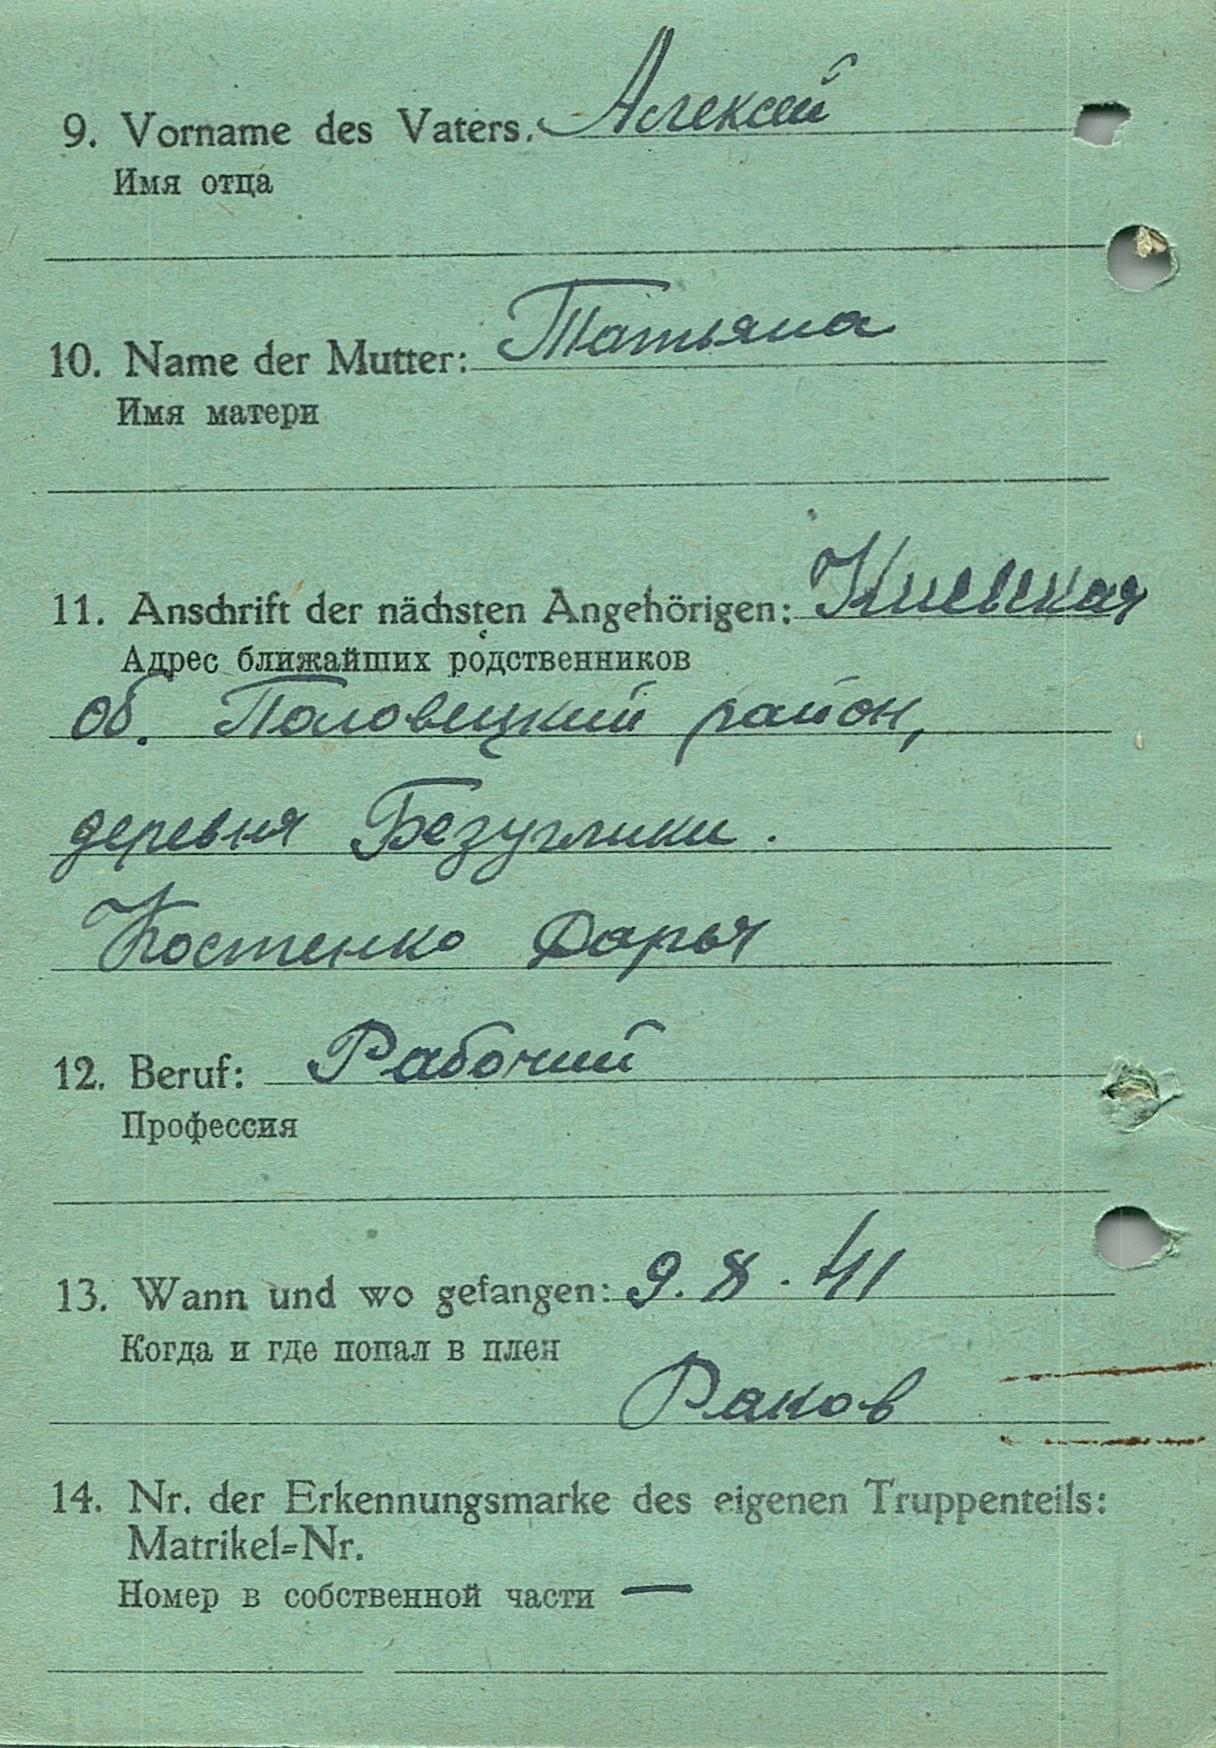 9. Vorname des Vaters. Алексей
Имя отца
10. Name der Mutter: Татьяна
Имя матери
11. Anschrift der nächsten Angehörigen: Киевская
Адрес ближайших родственников
об. Половецкий район,
деревня Безуглики.
Костенко Дарья
12. Beruf: Рабочий
Профессия
13. Wann und wo gefangen: 9. 8. 41
Когда и где попал в плен
Раков
14. Nr. der Erkennungsmarke des eigenen Truppenteils:
Matrikel=Nr.
Номер в собственной части —